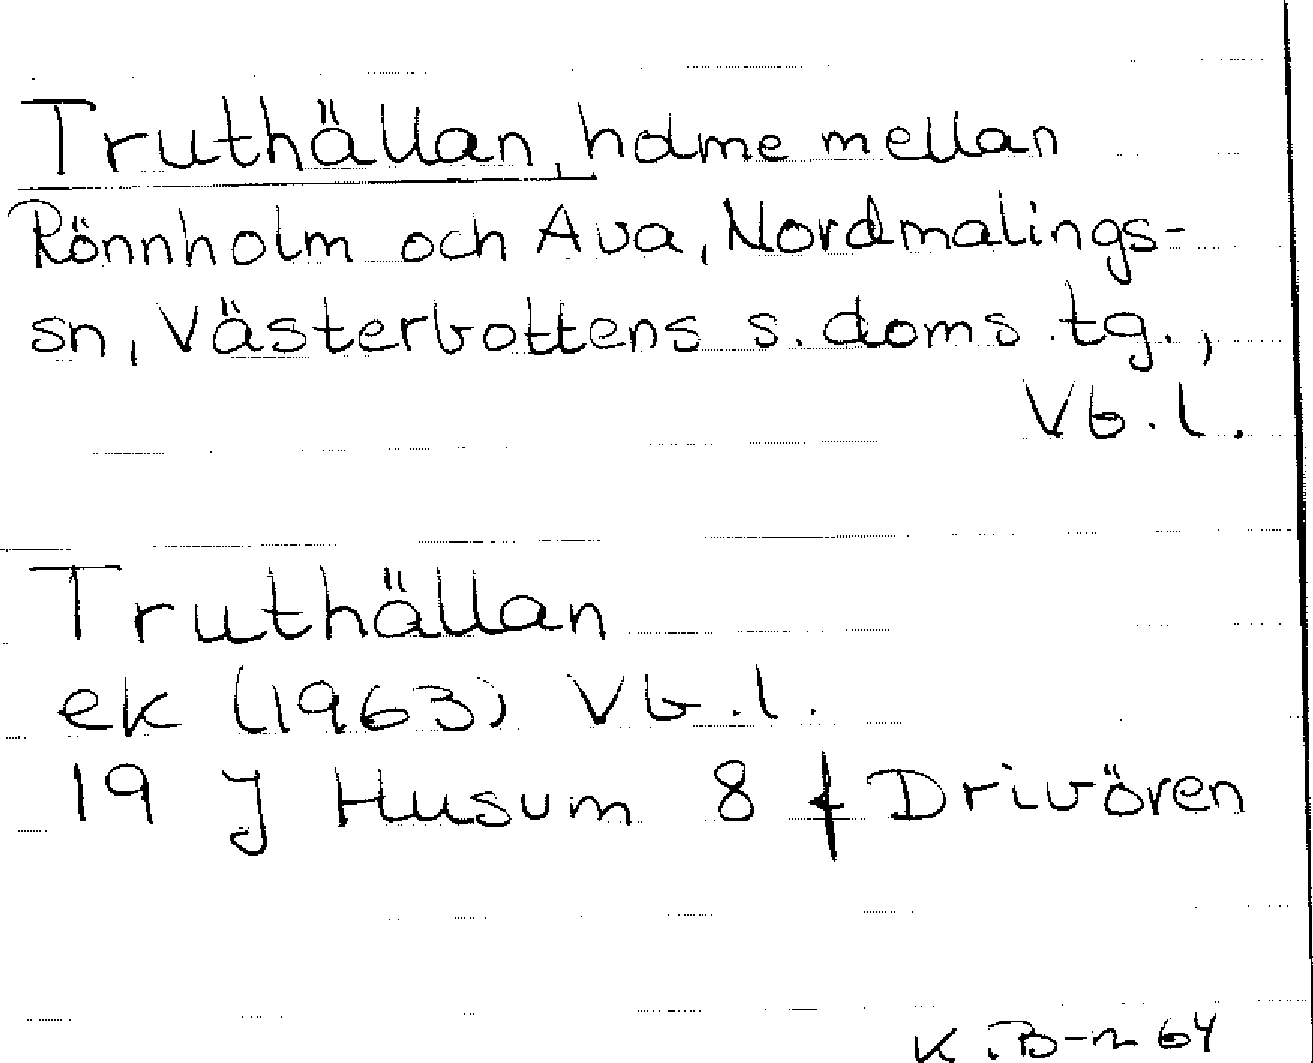 Truthällan, holme mellan
Rönnholm och Ava, Nordmalings-
sn, Västerbottens s. doms. tg.,
Vb. l.
Truthällan
ek (1963) Vb. l.
19 J Husum 8 f Drivören
K. B-n 64